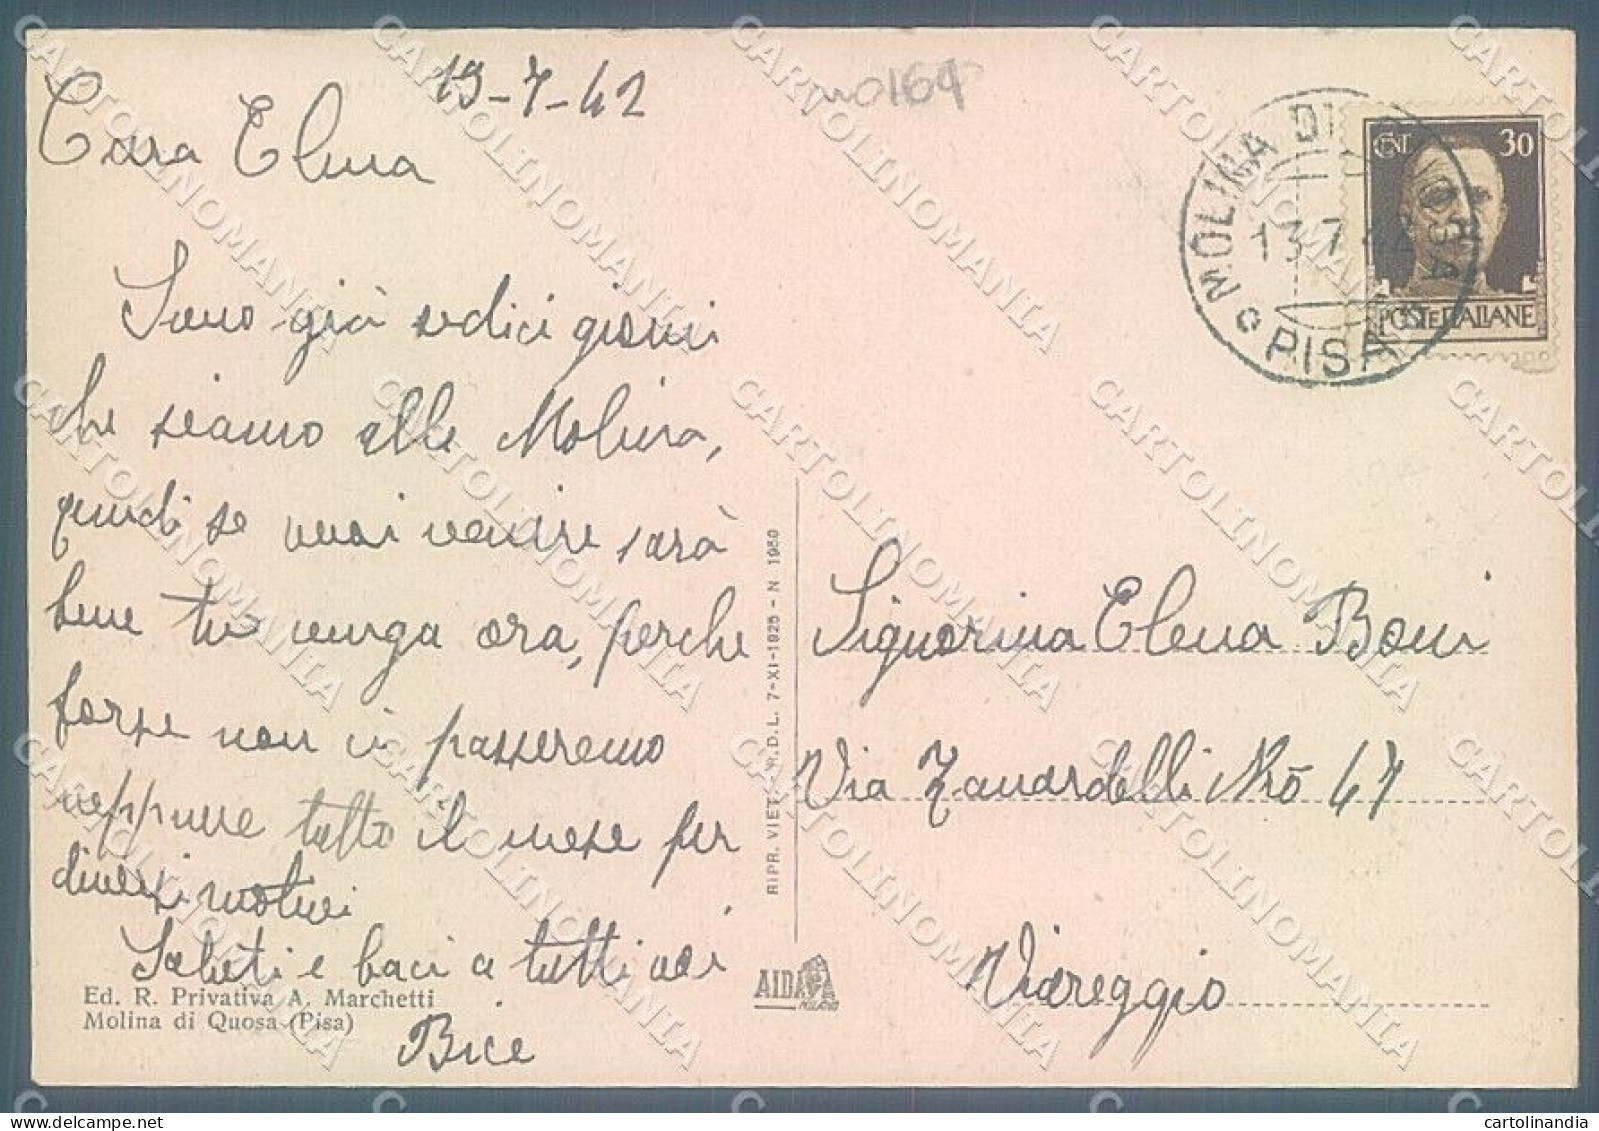 13-7-42
mo164
Cara Elena
Sono già sedici giorni
che siamo alle Molina,
quindi se vuoi venire sarà
bene tu venga ora, perche
forse non vi passeremo
neppure tutto il mese per
diversi motivi
Saluti e baci a tutti voi
Bice
Ed. R. Privativa A. Marchetti
Molina di Quosa (Pisa)
RIPR. VIET. - R.D.L. 7-XI-1925 - N 1950
AIDA
MILANO
MOLINA DI QUOSA
13.7.42
PISA
CENT 30
POSTE ITALIANE
Signorina Elena Boni
Via Zanardelli Nrō 47
Viareggio
CARTOLINOMANIA
cartolinandia